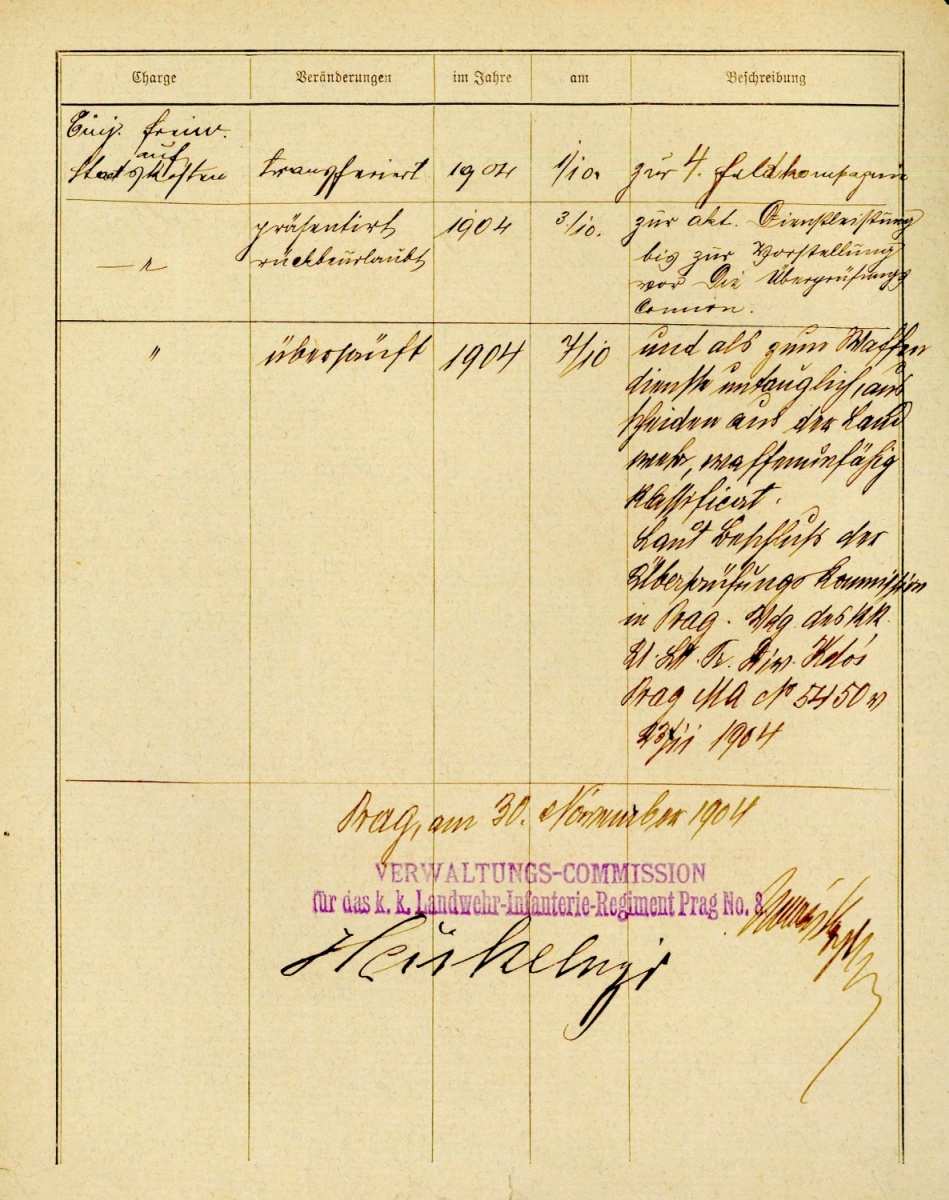 Charge Veränderungen im Jahre am Beschreibung
Einj. freiw.
auf
Staatskosten transferiert 1904 1/10. zur 4. Feldkompagnie
präsentirt 1904 3/10. zur akt. Dienstleistung
— " rückbeurlaubt bis zur Vorstellung
vor Die Überprüfungs
Comion.
" überprüft 1904 7/10 und als zum Waffen
dienste untauglich, aus
scheiden aus der Land
wehr, waffenunfähig
klassificirt.
Laut Beschluß der
Überprüfungs Kommission
in Prag. Vdg. des k.k.
Div. Kdos
Prag MA No 5450 v
23/11 1904
Prag, am 30. November 1904
VERWALTUNGS-COMMISSION
für das k. k. Landwehr-Infanterie-Regiment Prag No. 8.